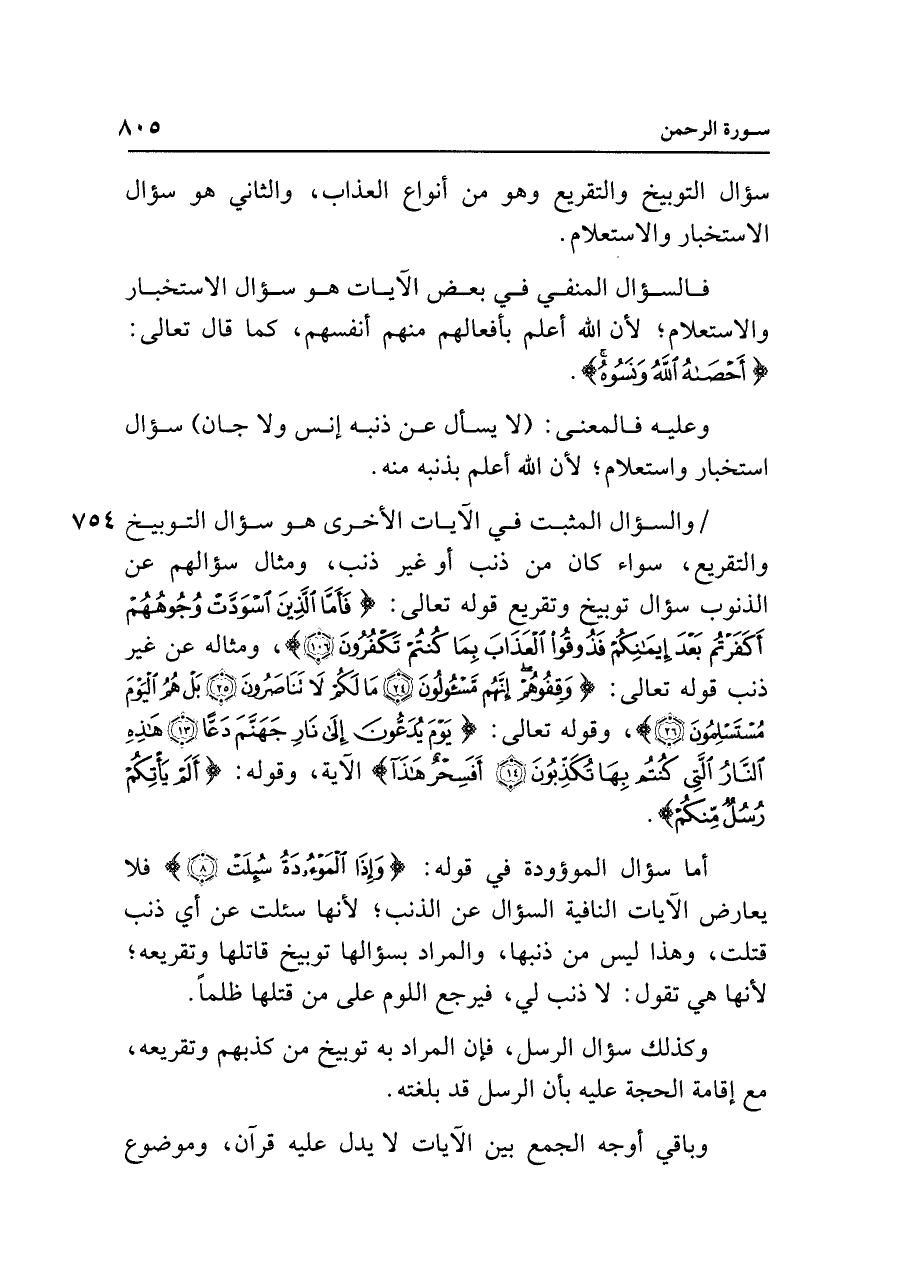 سورة الرحمن ٨٠٥
سؤال التوبيخ والتقريع وهو من أنواع العذاب، والثاني هو سؤال
الاستخبار والاستعلام.
فالسؤال المنفي في بعض الآيات هو سؤال الاستخبار
والاستعلام؛ لأن الله أعلم بأفعالهم منهم أنفسهم، كما قال تعالى:
﴿أَحْصَىٰهُ ٱللَّهُ وَنَسُوهُۚ﴾.
وعليه فالمعنى: (لا يسأل عن ذنبه إنس ولا جان) سؤال
استخبار واستعلام؛ لأن الله أعلم بذنبه منه.
/ والسؤال المثبت في الآيات الأخرى هو سؤال التوبيخ ٧٥٤
والتقريع، سواء كان من ذنب أو غير ذنب، ومثال سؤالهم عن
الذنوب سؤال توبيخ وتقريع قوله تعالى: ﴿فَأَمَّا ٱلَّذِينَ ٱسْوَدَّتْ وُجُوهُهُمْ
أَكَفَرْتُم بَعْدَ إِيمَٰنِكُمْ فَذُوقُوا۟ ٱلْعَذَابَ بِمَا كُنتُمْ تَكْفُرُونَ ١٠٦﴾، ومثاله عن غير
ذنب قوله تعالى: ﴿وَقِفُوهُمْۖ إِنَّهُم مَّسْـُٔولُونَ ٢٤ مَا لَكُمْ لَا تَنَاصَرُونَ ٢٥ بَلْ هُمُ ٱلْيَوْمَ
مُسْتَسْلِمُونَ ٢٦﴾، وقوله تعالى: ﴿يَوْمَ يُدَعُّونَ إِلَىٰ نَارِ جَهَنَّمَ دَعًّا ١٣ هَٰذِهِ
ٱلنَّارُ ٱلَّتِى كُنتُم بِهَا تُكَذِّبُونَ ١٤ أَفَسِحْرٌ هَٰذَآ﴾ الآية، وقوله: ﴿أَلَمْ يَأْتِكُمْ
رُسُلٌ مِّنكُمْ﴾.
أما سؤال الموؤودة في قوله: ﴿وَإِذَا ٱلْمَوْءُۥدَةُ سُئِلَتْ ٨﴾ فلا
يعارض الآيات النافية السؤال عن الذنب؛ لأنها سئلت عن أي ذنب
قتلت، وهذا ليس من ذنبها، والمراد بسؤالها توبيخ قاتلها وتقريعه؛
لأنها هي تقول: لا ذنب لي، فيرجع اللوم على من قتلها ظلماً.
وكذلك سؤال الرسل، فإن المراد به توبيخ من كذبهم وتقريعه،
مع إقامة الحجة عليه بأن الرسل قد بلغته.
وباقي أوجه الجمع بين الآيات لا يدل عليه قرآن، وموضوع